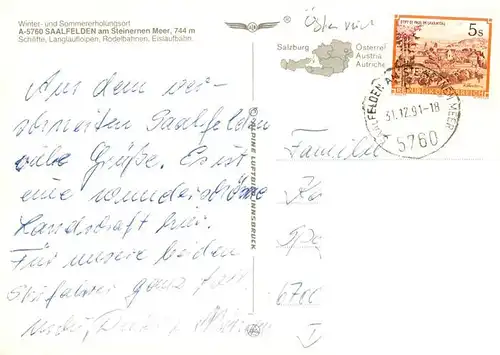 Winter- und Sommererholungsort
A-5760 SAALFELDEN am Steinernen Meer, 744 m
Schilifte, Langlaufloipen, Rodelbahnen, Eislaufbahn.
Aus dem ver-
schneiten Saalfelden
viele Grüße. Es ist
eine wunderschöne
Landschaft hier.
Für unsere beiden
Skifahrer ganz
ALPINE LUFTBILD INNSBRUCK
Österreich
Salzburg
Österrei
Austria
Autriche
5s
REPUBLIK
SAALFELDEN AM STEINERNEN MEER
31.12.91-18
5760
Familie
Ka
6700